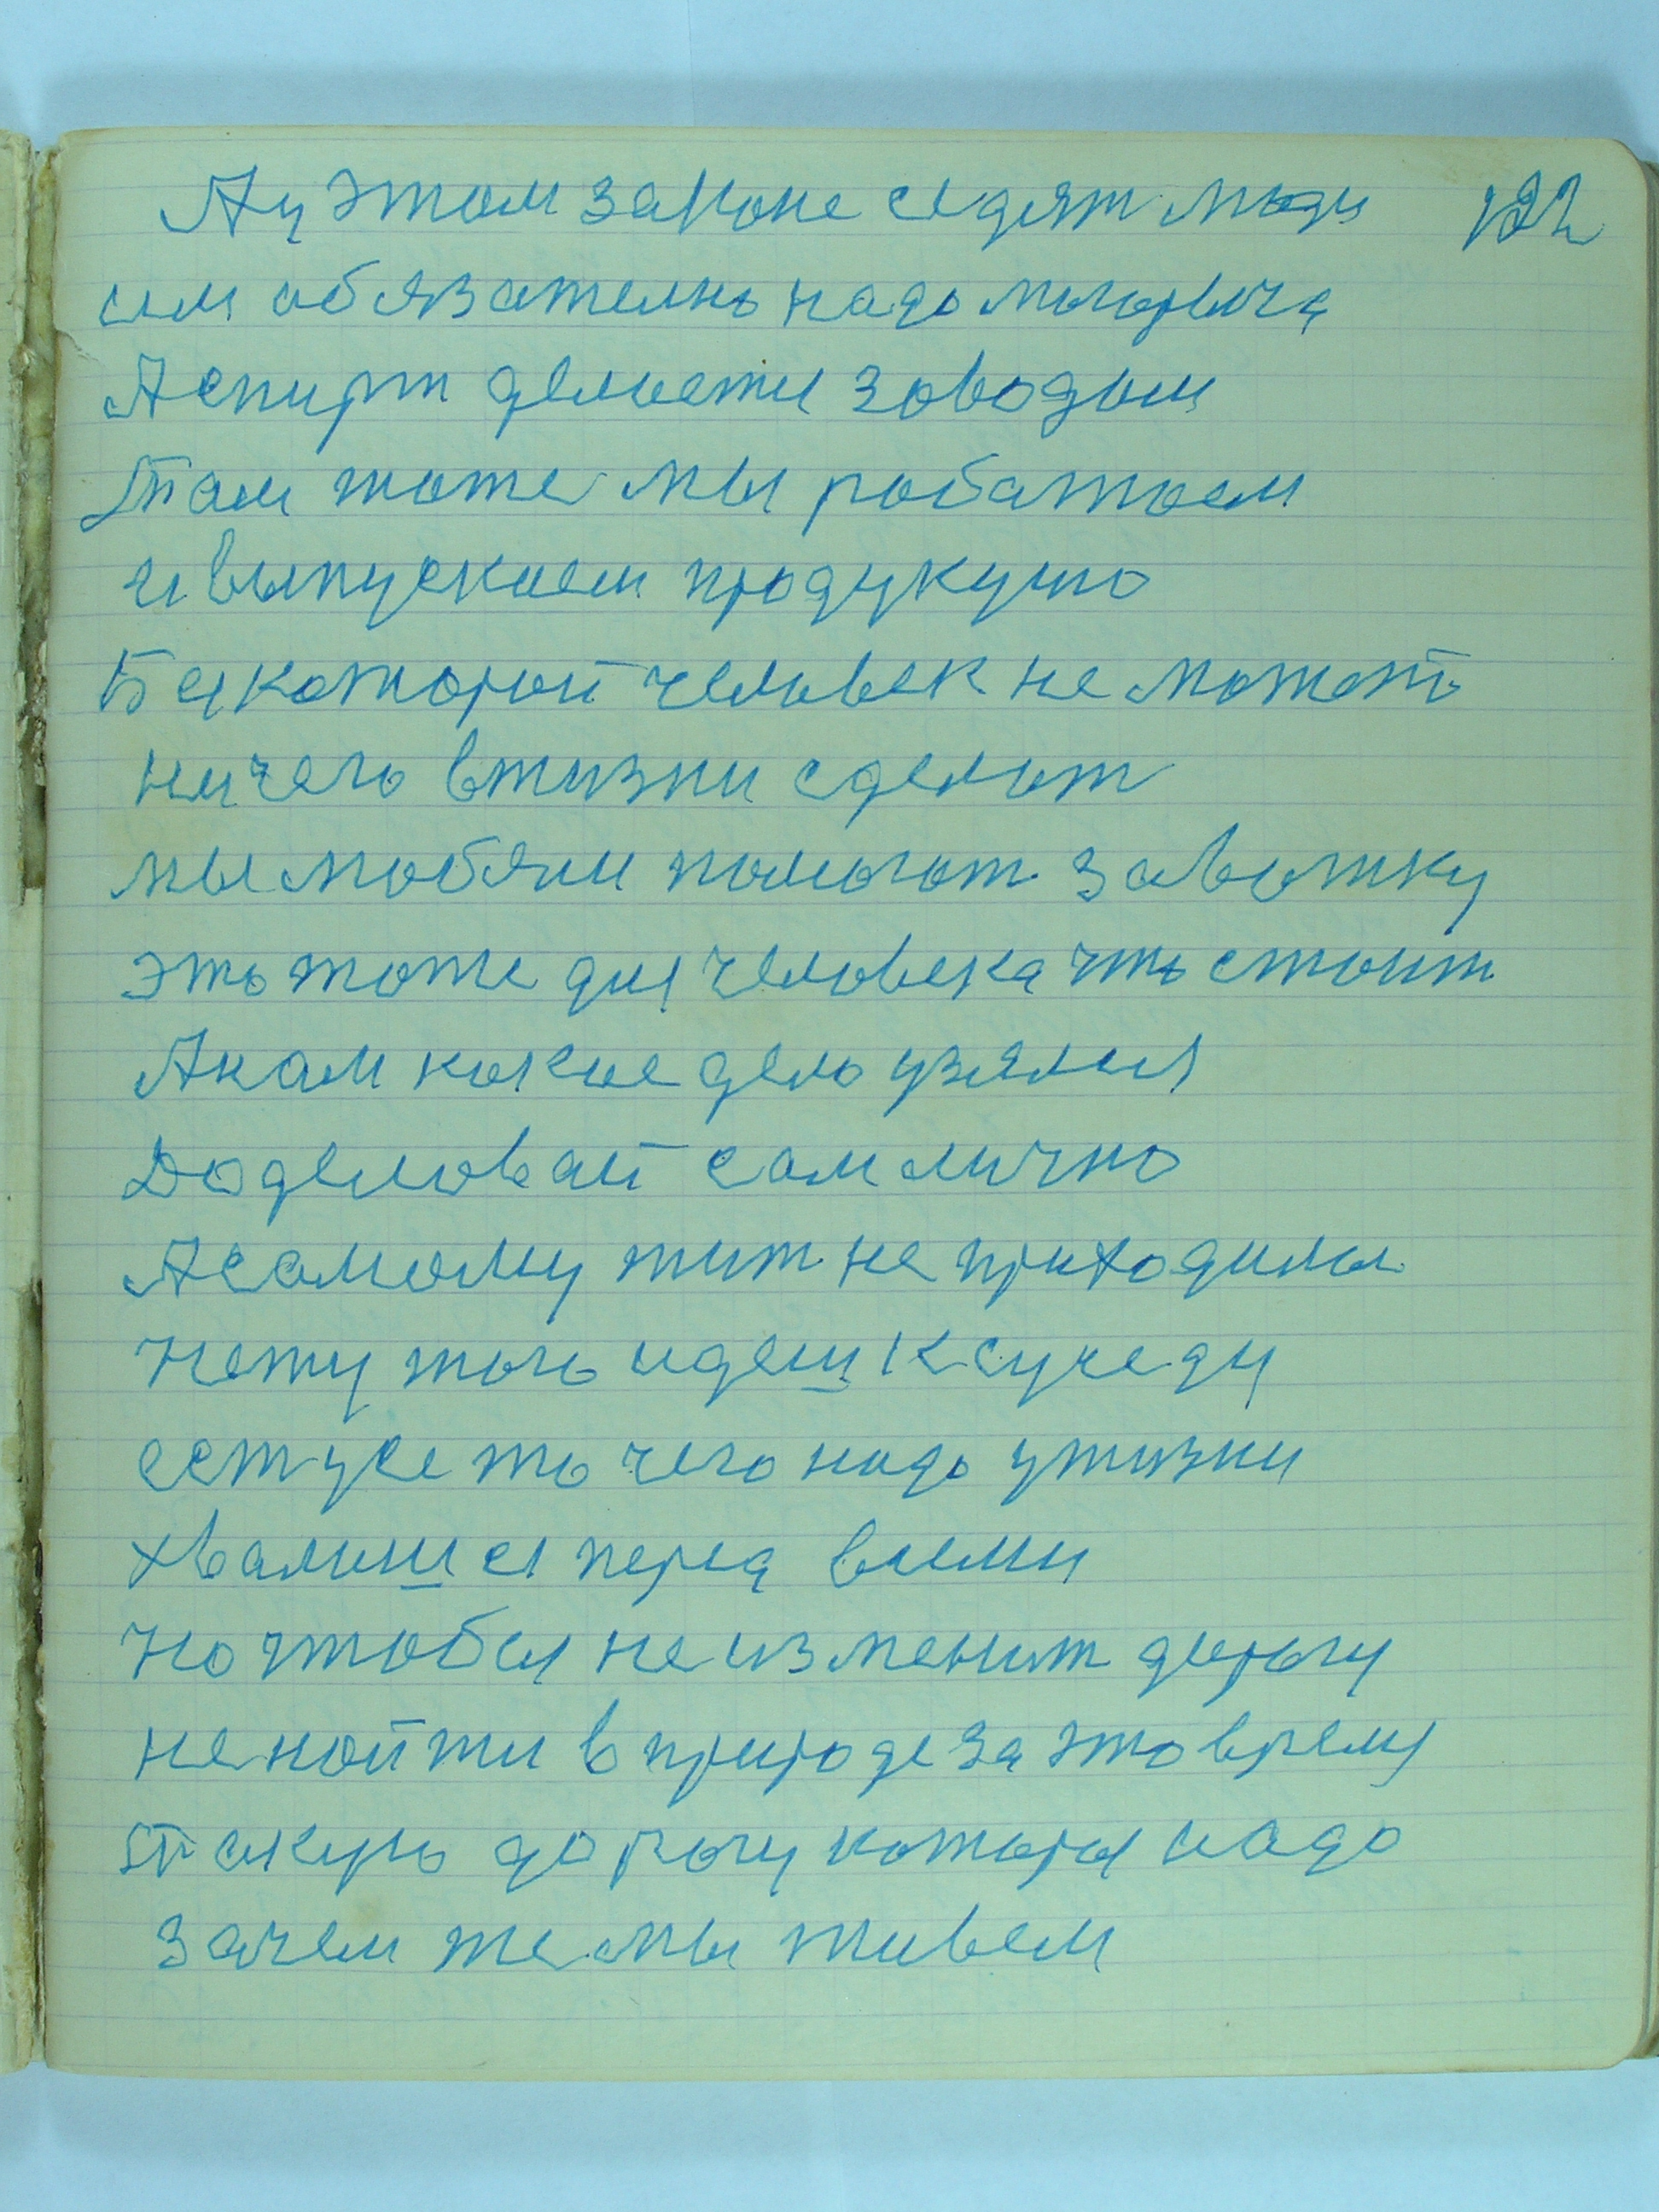 Ау этом законе седят люди 122
им обязателнь надо могорыча
Аспирт делаетя заводом
Там тоже мы работаем
и выпускаем продукцию
Без которой человек не может
ничего в жизни сделат
мы любяли помогат завотку
эть тоже для человека что стоит
Акам какое дело узялся
Доделовай сам лично
Асамому жит не приходилы
Нету того идеш к суседу
ест усе то чего надо у жизни
хвалишся перед всеми
Но чтобы не изменит дорогу
не найти в природе за это время
такую дорогу которы надо
Зачем же мы живем